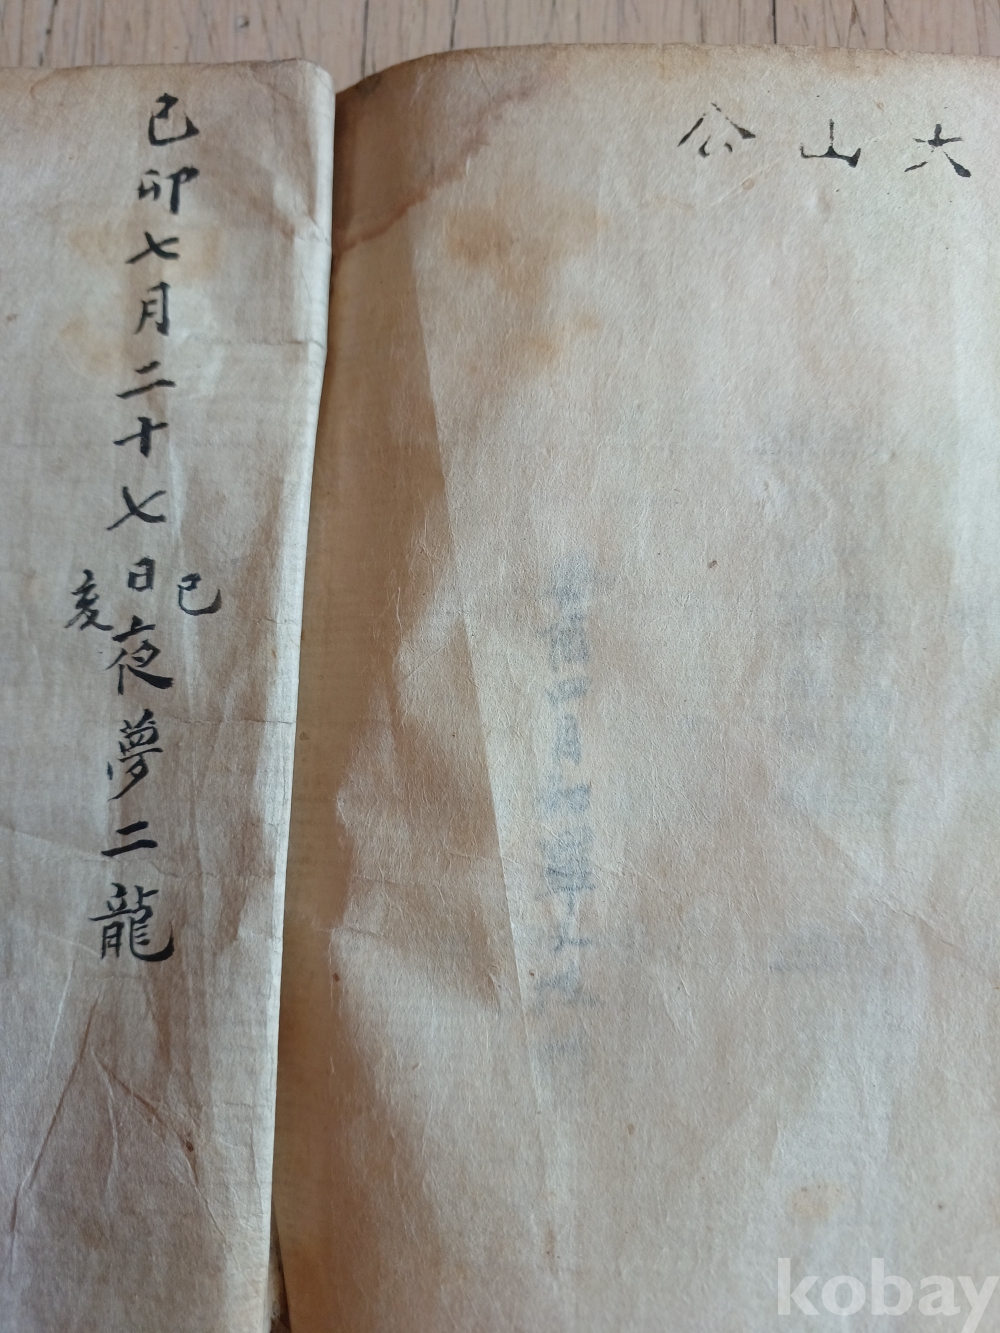 大山公
己卯七月二十七日己亥夜夢二龍
kobay